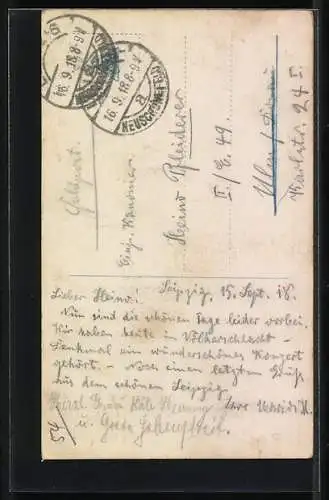 16.9.18.8-9V
LEIPZIG-
NEUSCHÖNEFELD
a
16.9.18.8-9V
Feldpost.
Einj. Kanonier
Heino Pfleiderer
II/E. 49.
Ulm/Donau
Karlstr. 24 I.
Leipzig, 15. Sept. 18.
Lieber Heino!
Nun sind die schönen Tage leider vorbei.
Wir haben heute im Völkerschlacht-
Denkmal ein wunderschönes Konzert
gehört. – Noch einen letzten Gruß
aus dem schönen Leipzig
u. Grete